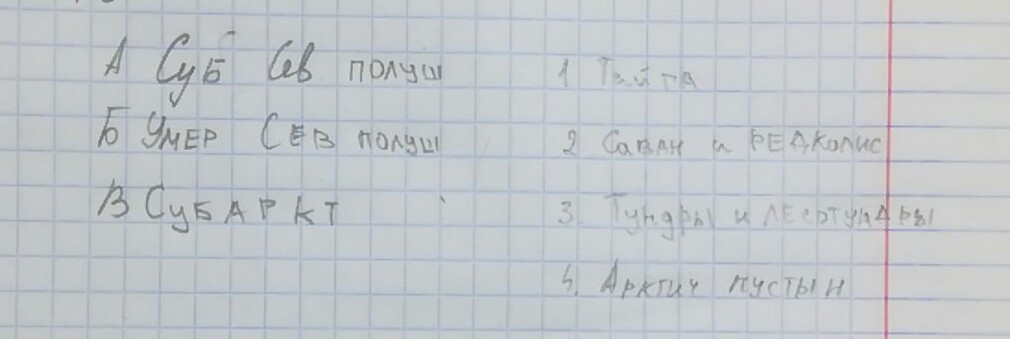 А Суб Сев полуш 1 Тайга
Б Умер Сев полуш 2 Саван и редколис
В Субаркт 3. Тундры и лесотундры
4. Арктич пустын